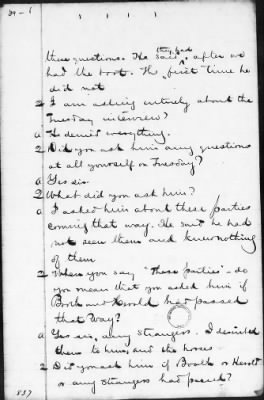 39-6
these questions. He said, after we
had the boot. The first time he
did not
Q I am asking entirely about the
Tuesday interview?
a He denied everything.
Q Did you ask him any questions
at all yourself on Tuesday?
a Yes sir.
Q What did you ask him?
a I asked him about these parties
coming that way. He said he had
not seen them and knew nothing
of them
Q When you say "These parties" - do
you mean that you asked him if
Booth and Herold had passed
that way?
a Yes sir, any strangers. I described
them to him, and the horses
Q Did you ask him if Booth or Herold
or any strangers had passed?
837